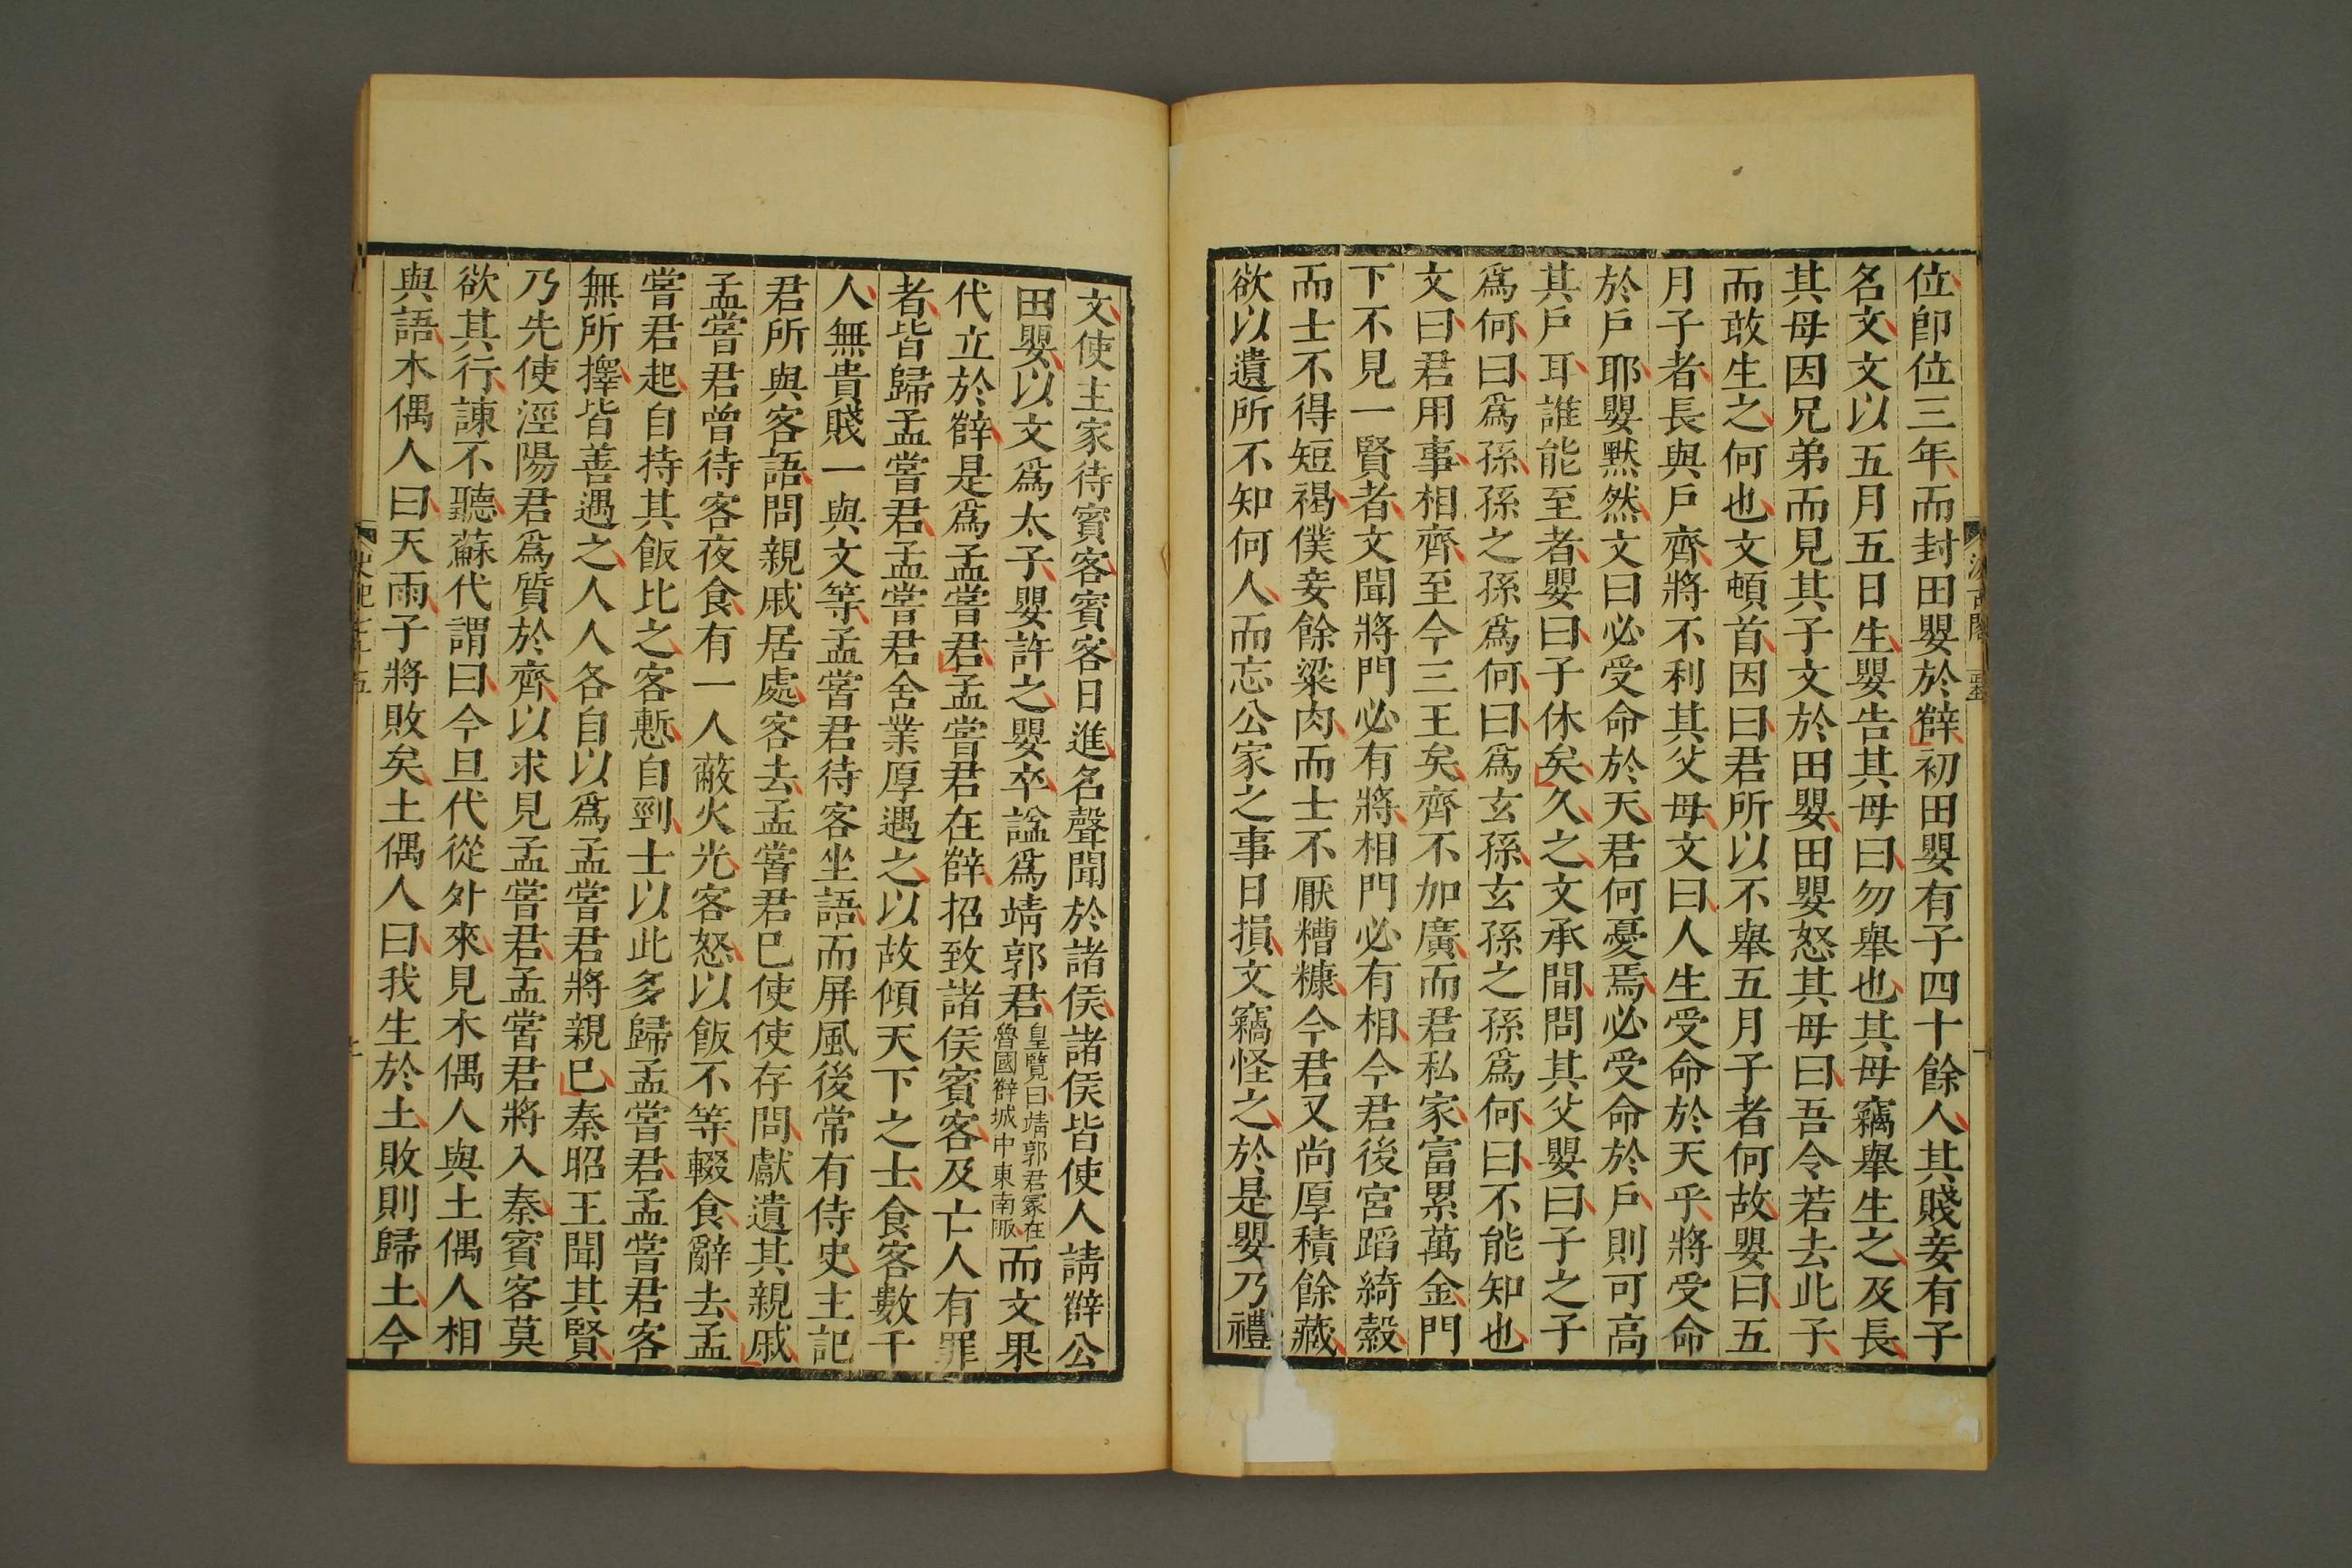 位卽位三年而封田嬰於薛初田嬰有子四十餘人其賤妾有子
名文文以五月五日生嬰告其母曰勿舉也其母竊舉生之及長
其母因兄弟而見其子文於田嬰田嬰怒其母曰吾令若去此子
而敢生之何也文頓首因曰君所以不舉五月子者何故嬰曰五
月子者長與戶齊將不利其父母文曰人生受命於天乎將受命
於戶耶嬰默然文曰必受命於天君何憂焉必受命於戶則可高
其戶耳誰能至者嬰曰子休矣久之文承間問其父嬰曰子之子
爲何曰爲孫孫之孫爲何曰爲玄孫玄孫之孫爲何曰不能知也
文曰君用事相齊至今三王矣齊不加廣而君私家富累萬金門
下不見一賢者文聞將門必有將相門必有相今君後宮蹈綺縠
而士不得短褐僕妾餘粱肉而士不厭糟糠今君又尚厚積餘藏
欲以遺所不知何人而忘公家之事日損文竊怪之於是嬰乃禮
文使主家待賓客賓客日進名聲聞於諸侯諸侯皆使人請薛公
田嬰以文爲太子嬰許之嬰卒諡爲靖郭君皇覽曰靖郭君冢在魯國薛城中東南陬而文果
代立於薛是爲孟嘗君孟嘗君在薛招致諸侯賓客及亡人有罪
者皆歸孟嘗君孟嘗君舍業厚遇之以故傾天下之士食客數千
人無貴賤一與文等孟嘗君待客坐語而屏風後常有侍史主記
君所與客語問親戚居處客去孟嘗君已使使存問獻遺其親戚
孟嘗君曾待客夜食有一人蔽火光客怒以飯不等輟食辭去孟
嘗君起自持其飯比之客慙自剄士以此多歸孟嘗君孟嘗君客
無所擇皆善遇之人人各自以爲孟嘗君將親已秦昭王聞其賢
乃先使涇陽君爲質於齊以求見孟嘗君孟嘗君將入秦賓客莫
欲其行諫不聽蘇代謂曰今旦代從外來見木偶人與土偶人相
與語木偶人曰天雨子將敗矣土偶人曰我生於土敗則歸土今
史記七十五